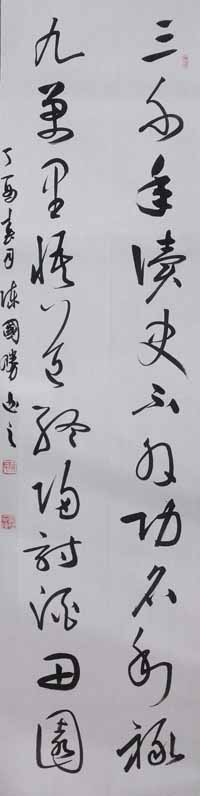 三千年讀史不外功名利祿
九萬里悟道終歸詩酒田園
丁酉春月陳國勝書之